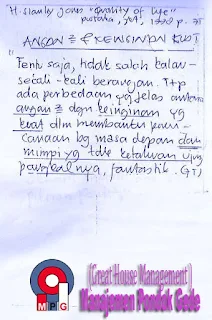 H. Stanley Jones "Quality of Life"
ANGAN² & KEINGINAN KUAT
"Tentu saja, tidak salah kalau
sekali-kali berangan. Ttp
ada perbedaan yg jelas antara
angan² dgn keinginan yg
kuat dlm membantu
canaan bg masa depan dan
mimpi yg tdk ketahuan ujung
pangkalnya, fantastik.
MPG
(Great House Management)
Manajemen Pondok Gede